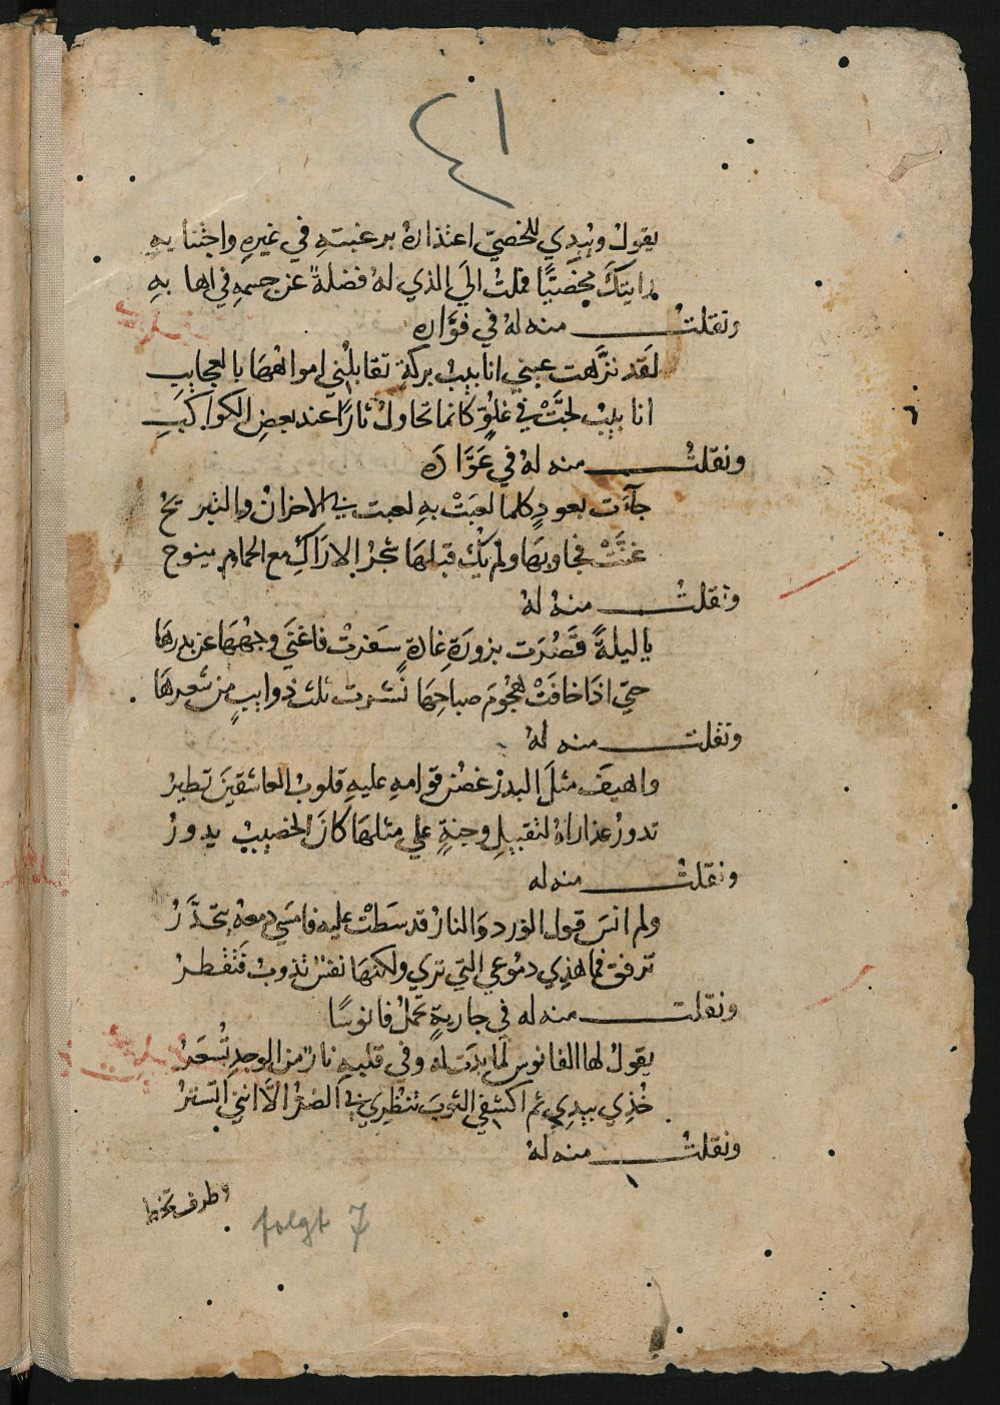 ٤١
يقول ويبدي للخصيّ اعتذاره برغبته في غيره واجتنابه
رايتك مخصيًّا فملت الي الذي له فضلةً عن جسمه في اهابه
ونقلت منه له في فوّاره
لقد نزّهت عيني انابيب بركةٍ تقابلني امواهها بالعجايب
انابيب لجّت في غلوٍّ كانما تحاول ثارًا عند بعض الكواكب
ونقلت منه له في عوّاده
جآءت بعودٍ كلما لعبت به لعبت بي الاحزان والتبريح
غنّت فجاوبها ولم يك قبلها شجر الاراك مع الحمام ينوح
ونقلت منه له
ياليلةً قصُرت بزورة غادةٍ سفرت فاغنَي وجهها عن بدرها
حتي اذا خافت هجوم صباحها نشرت ثلث ذوايبٍ من شعرها
ونقلت منه له
واهيف مثل البدر غصن قوامه عليه قلوب العاشقين تطير
تدور عذاراه لتقبيل وجنةٍ علي مثلها كان الخصيب يدور
ونقلت منه له
ولم انس قول الورد والنار قد سطت عليه فامسي دمعه يتحدّر
ترفق فما هذي دموعي التي تري ولكنها نفس تذوب فتقطر
ونقلت منه له في جاريةٍ تحمل فانوسًا
يقول لها الفانوس لما بدت له وفي قلبه نار من الوجد تسعر
خذي بيدي ثم اكشفي الثوب تنظري بي الضر الّا انني اتستر
ونقلت منه له
وطرف تخط
folgt 7